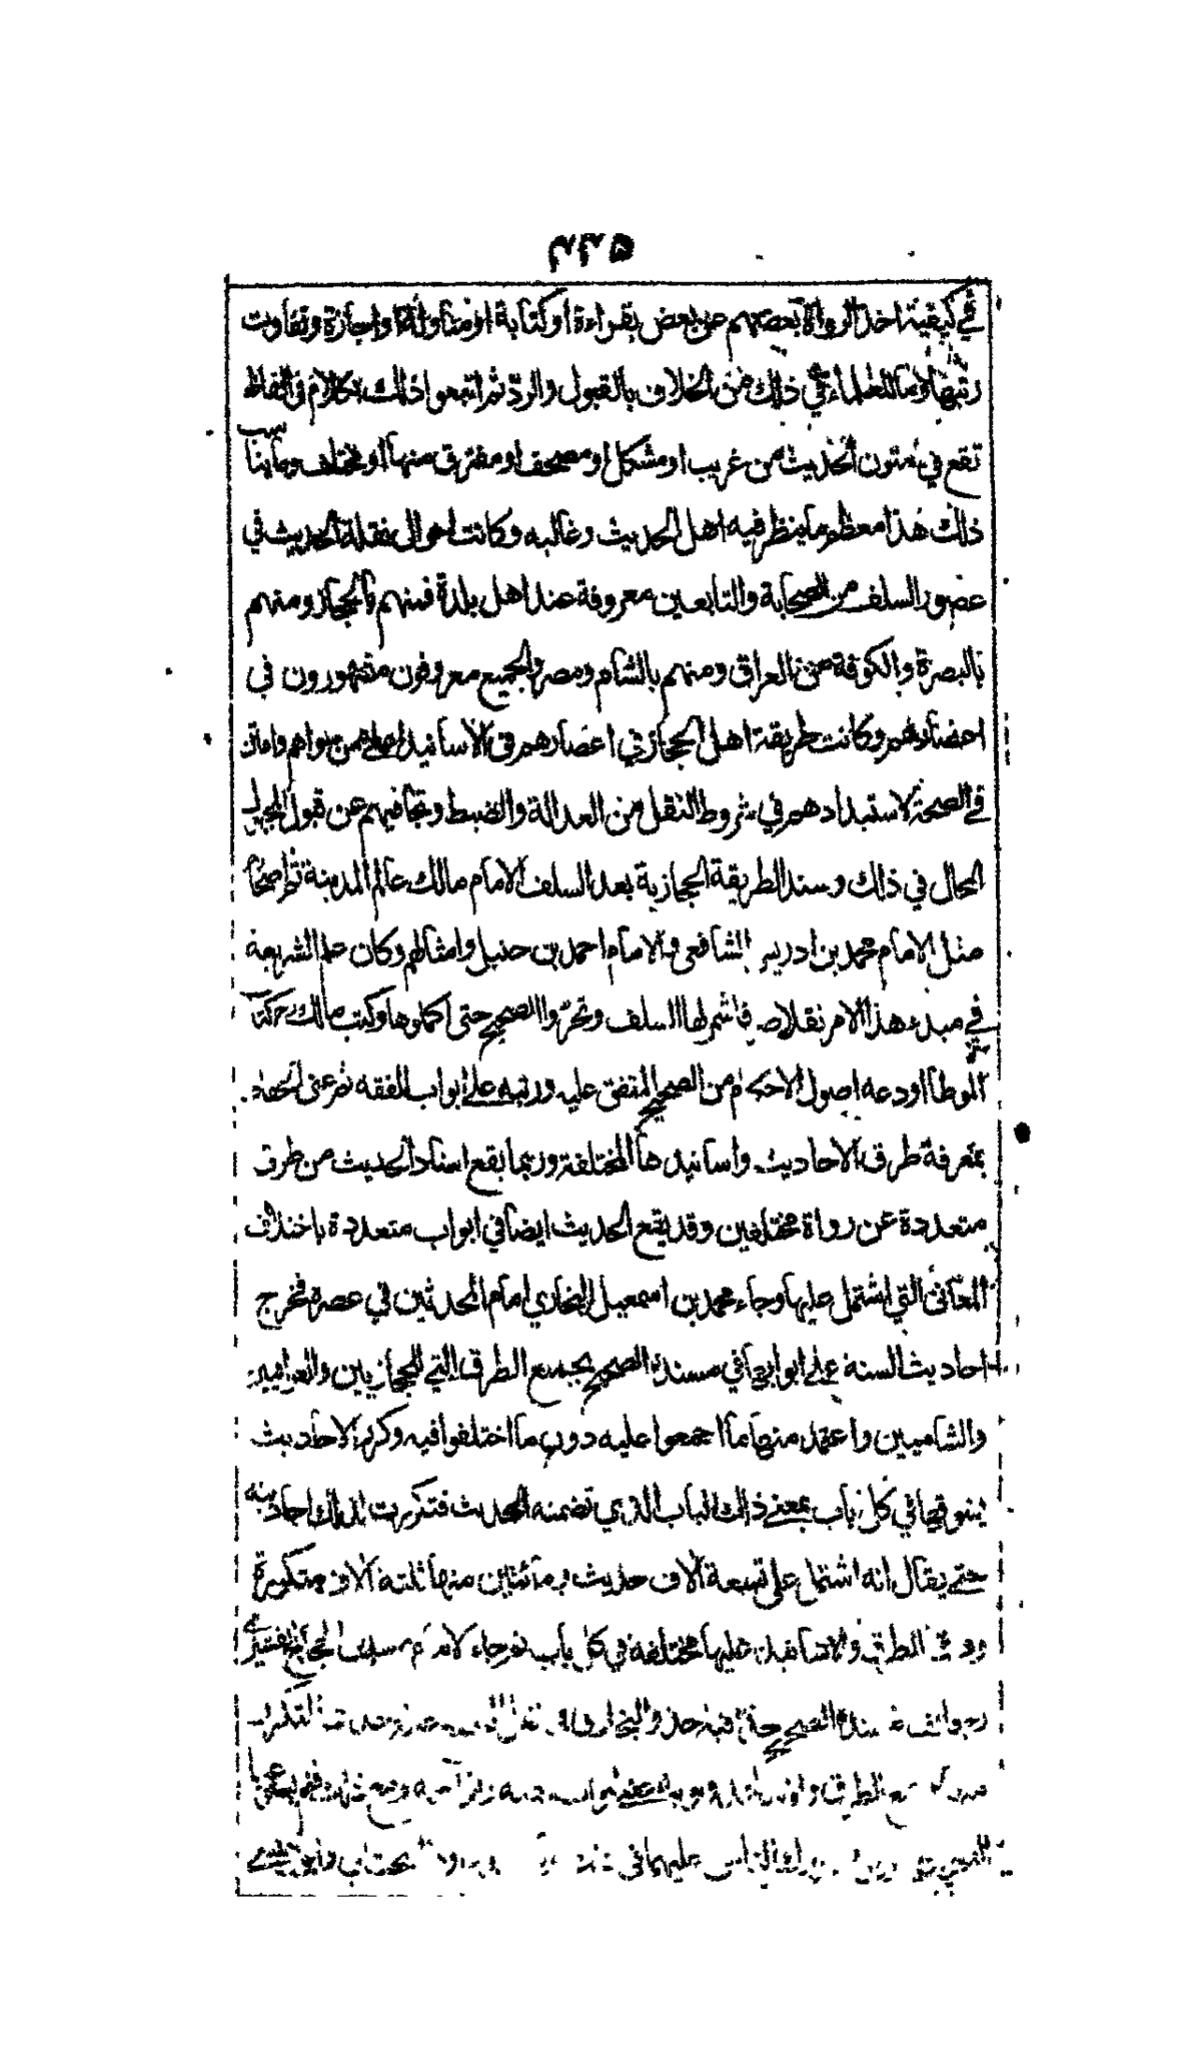 ٢٢٥
في كيفية اخذ الرواة بعضهم من بعض بقراءة او كتابة او مناولة او اجازة وتفاوت
رتبها وما للعلماء في ذلك من الخلاف بالقبول والرد ثم اتبعوا ذلك بكلام في الفاظ
تقع في متون الحديث من غريب او مشكل او مصحف او مفترق منها او مختلف وما يناسب
ذلك هذا معظم ما ينظر فيه اهل الحديث وغالبه وكانت احوال نقلة الحديث في
عصور السلف من الصحابة والتابعين معروفة عند اهل بلدة فمنهم بالحجاز ومنهم
بالبصرة والكوفة من العراق ومنهم بالشام ومصر والجميع معروفون مشهورون في
اعصارهم وكانت طريقة اهل الحجاز في اعصارهم في الاسانيد اعلى ممن سواهم وامتن
في الصحة لاستبدادهم في شروط النقل من العدالة والضبط وتجافيهم عن قبول المجهول
الحال في ذلك وسند الطريقة الحجازية بعد السلف الامام مالك عالم المدينة ثم اصحابه
مثل الامام محمد بن ادريس الشافعي والامام احمد بن حنبل وامثالهم وكان علم الشريعة
في مبدء هذا الامر نقلا صرفا شمر لها السلف وتحروا الصحيح حتى اكملوها وكتب مالك رح كتاب
الموطا اودعه اصول الاحكام من الصحيح المتفق عليه ورتبه على ابواب الفقه ثم عنى الحفاظ
بمعرفة طرق الاحاديث واسانيدها المختلفة وربما يقع اسناد الحديث من طرق
متعددة عن رواة مختلفين وقد يقع الحديث ايضا في ابواب متعددة باختلاف
المعاني التي اشتمل عليها وجاء محمد بن اسمعيل البخاري امام المحدثين في عصره فخرج
احاديث السنة على ابوابها في مسنده الصحيح بجميع الطرق التي للحجازيين والعراقيين
والشاميين واعتمد منها ما اجمعوا عليه دون ما اختلفوا فيه وكرر الاحاديث
يسوقها في كل باب بمعنى ذلك الباب الذي تضمنه الحديث فتكررت لذلك احاديثه
حتى يقال انه اشتمل على تسعة الاف حديث و مائتين منها ثلثة الاف متكررة
وفرق الطرق والاسانيد عليها مختلفة في كل باب ثم جاء الامام مسلم بن الحجاج القشيري
مسنده الصحيح حذا فيه حذو البخاري في نقل
الطرق وابواب الفقه
الناس عليهما في